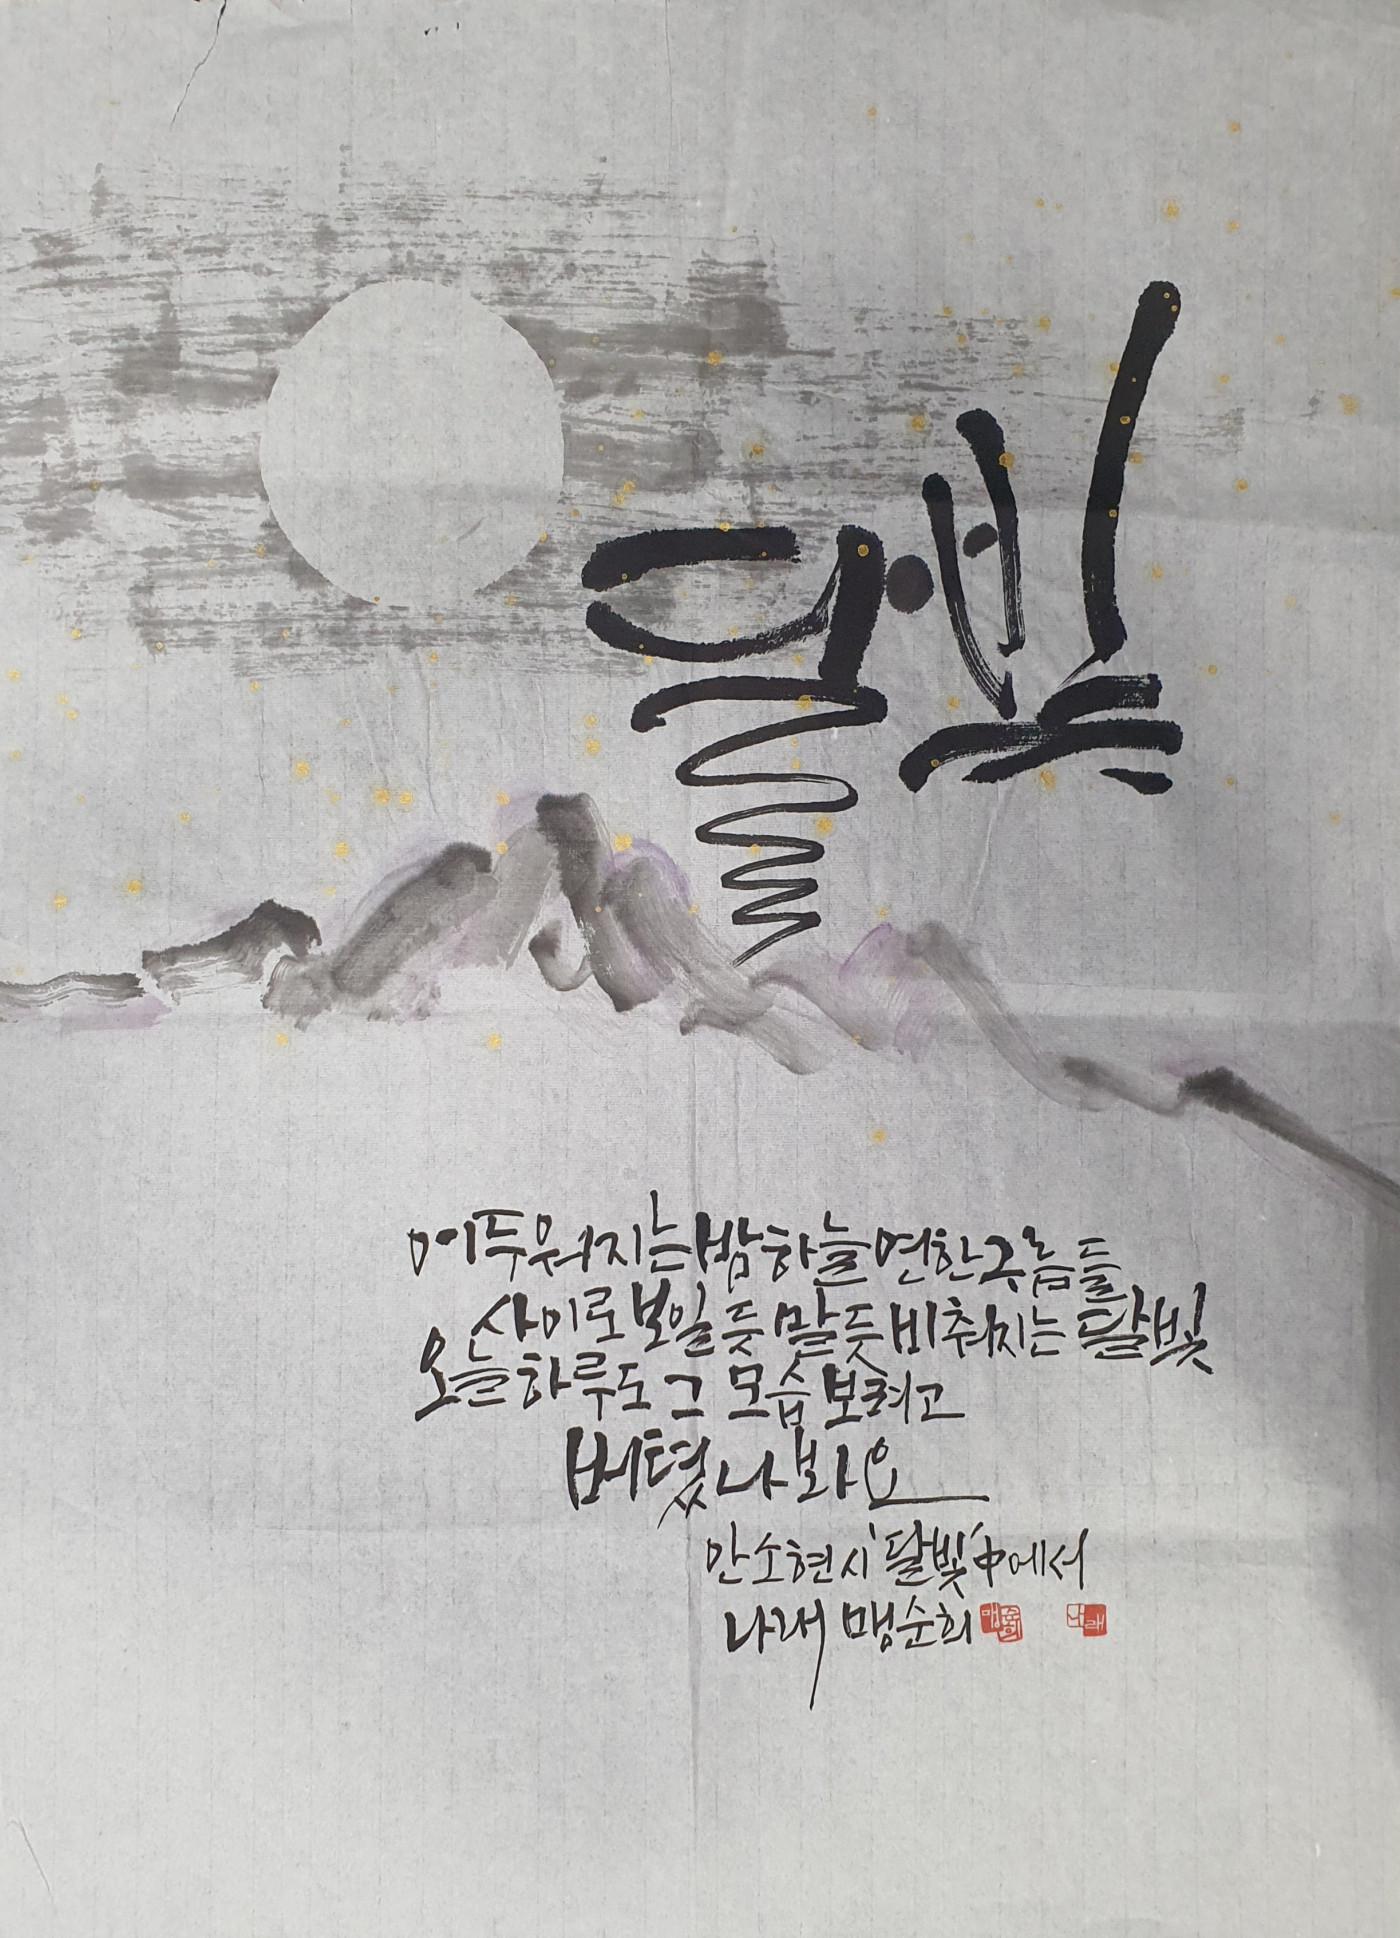 달빛
어두워지는 밤하늘 연한 구름들
사이로 보일듯 말듯 비춰지는 달빛
오늘 하루도 그 모습 보려고
버텼나봐요
안소현 시 '달빛' 中에서
나래 맹순희
맹순희
나래